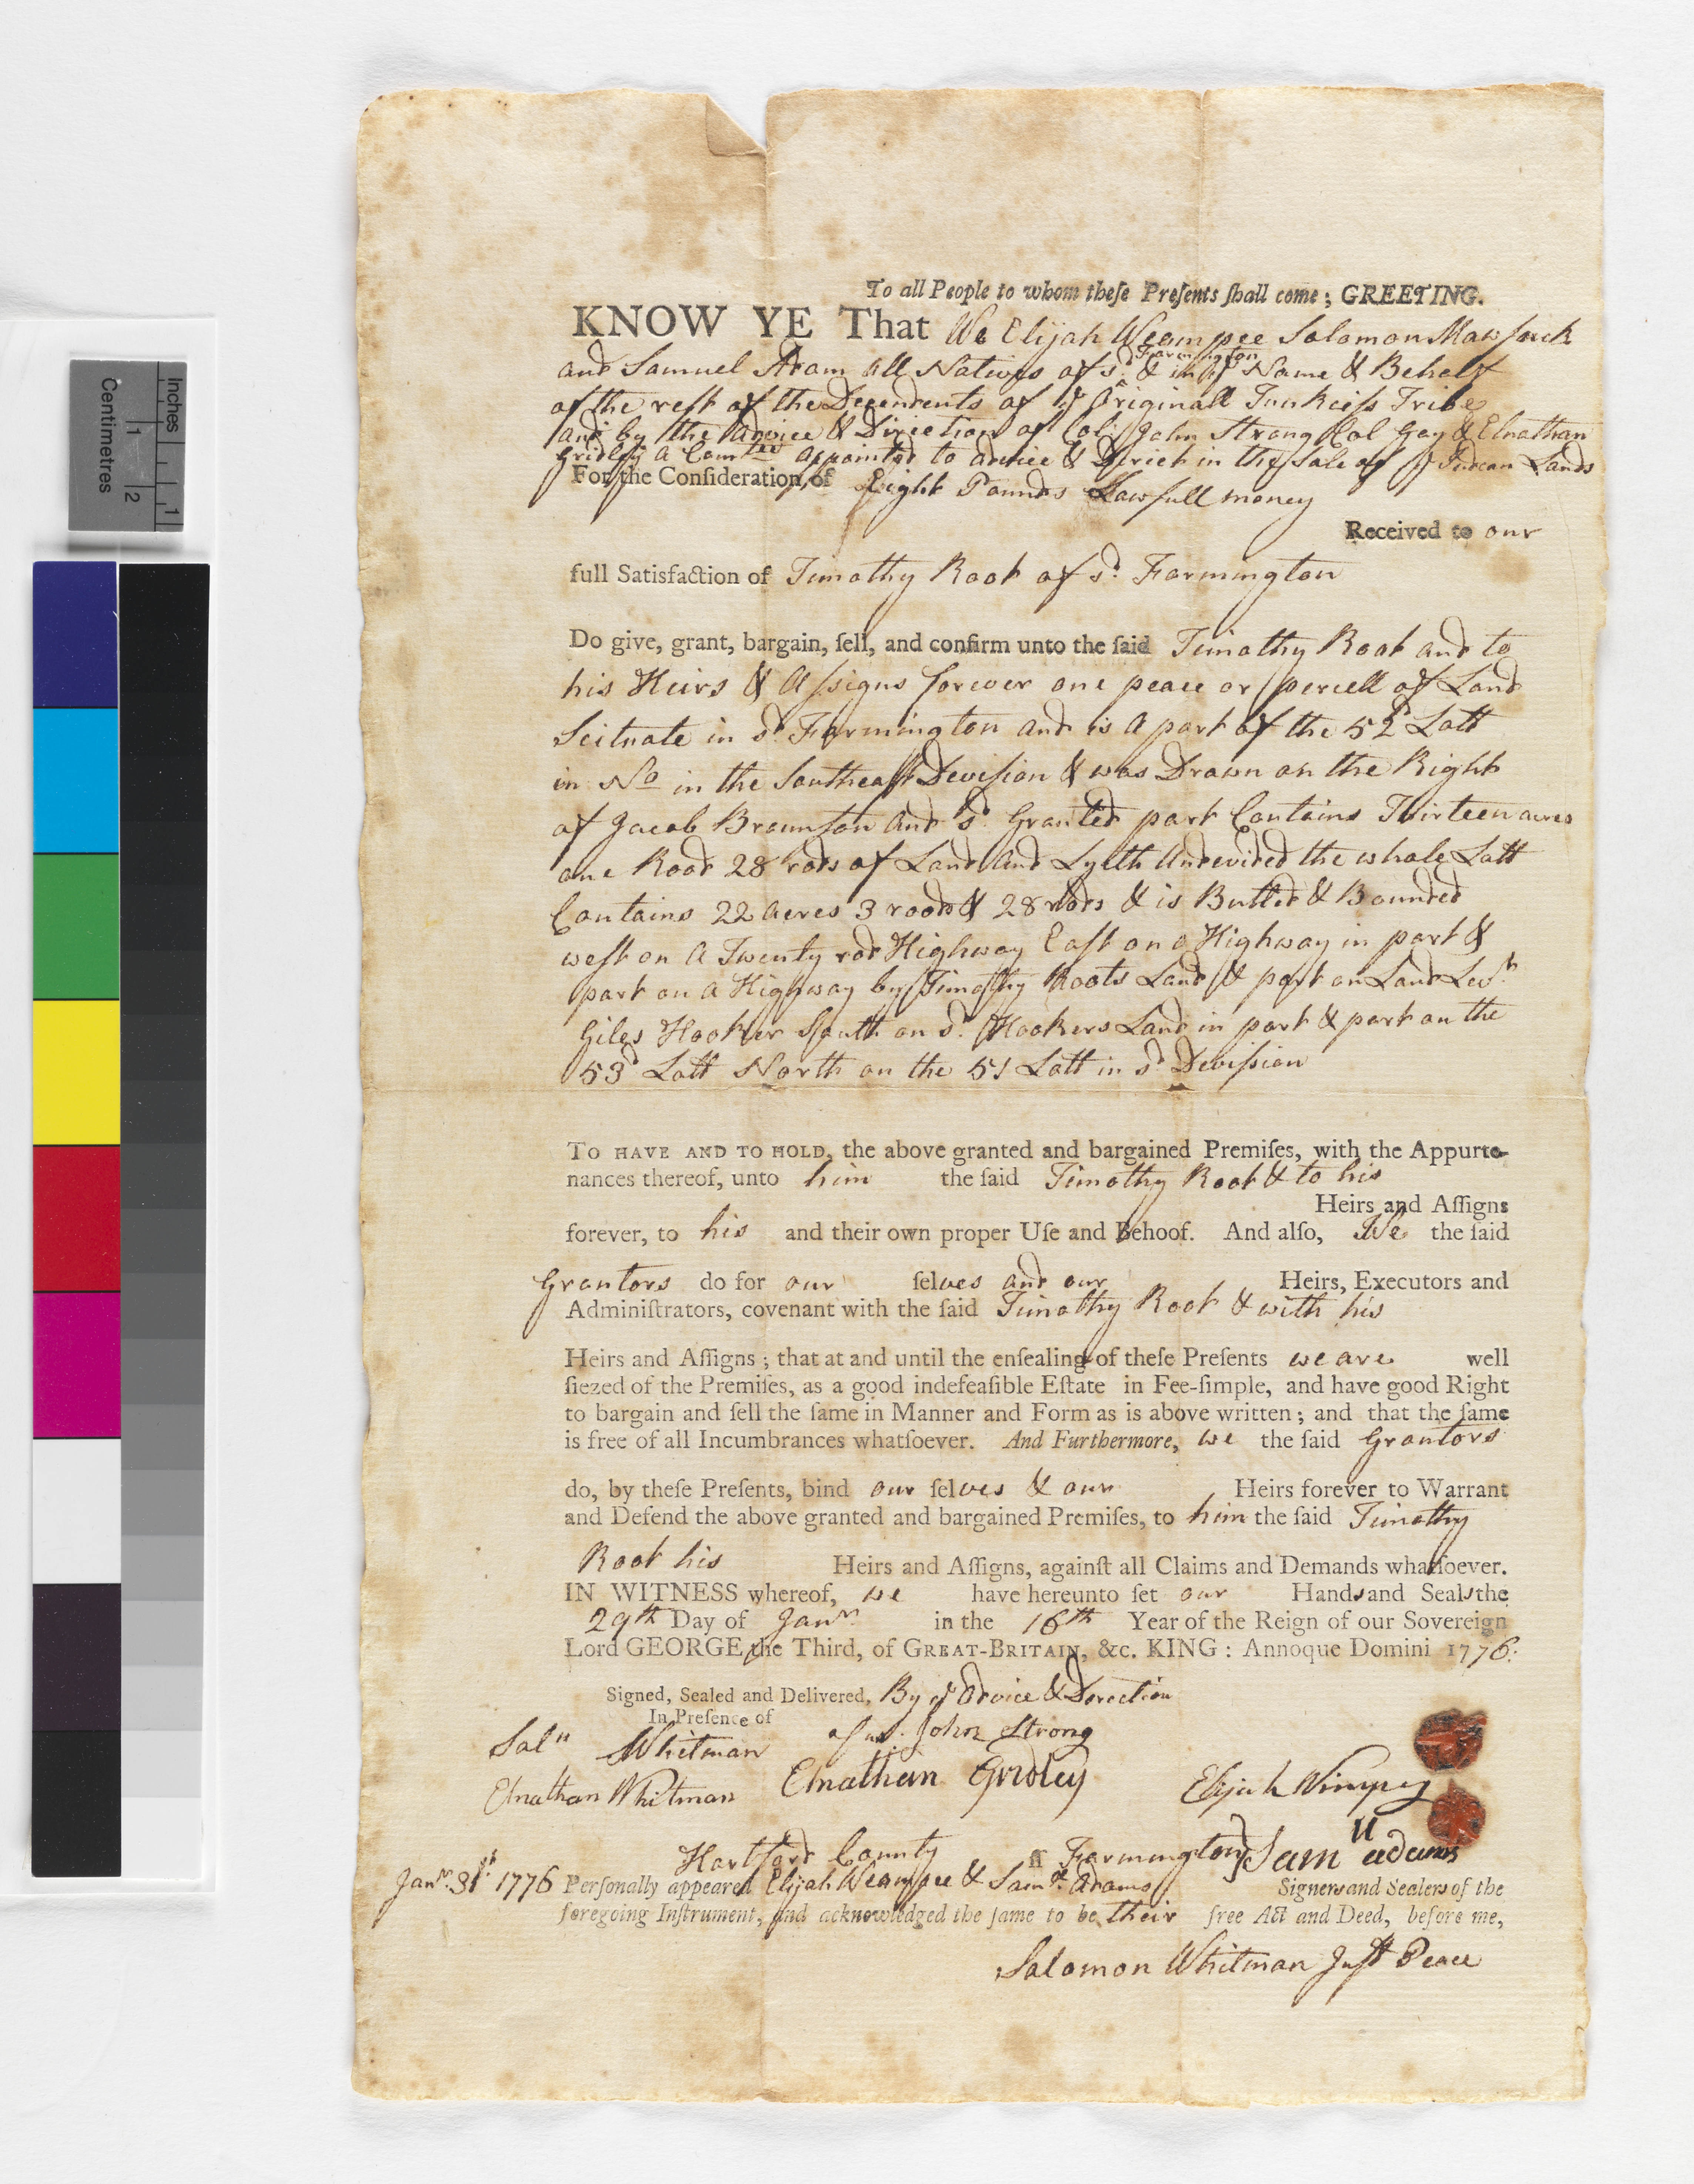 To all People to whom theſe Preſents ſhall come; GREETING.
KNOW YE That We Elijah Weampee Solomon Mawſuck
and Samuel Adam all Natives of sd. Farmington & in ye Name & Behalf
of the reſt of the Decendents of ye Originall Tunkciſs Tribe
and by the advice & Direction of Col: John Strong Col Gay & Elnathan
Gridley a Comtee appointed to advice & Dirict in the Sale of ye Indean Lands
For the Conſideration of Eight Pounds Lawfull money
Received to our
full Satisfaction of Timothy Root of sd. Farmington
Do give, grant, bargain, ſell, and confirm unto the ſaid Timothy Root and to
his Heirs & Aſsigns forever one peace or percell of Land
Scituate in sd. Farmington and is a part of the 52d Lott
in No in the Southeaſt Deviſion & was Drawn on the Right
of Jacob Brounſon and sd. Granted part Contains Thirteen acres
one Rood 28 rods of Land and Lyeth Undevided the whole Lott
Contains 22 acres 3 roods & 28 rods & is Butted & Bounded
weſt on A Twenty rod Highway Eaſt on a Highway in part &
part on a Highway by Timothy Roots Land & part on Land Leut.
Giles Hooker South on sd. Hookers Land in part & part on the
53d Lott North on the 51 Lott in sd. Deviſsion
TO HAVE AND TO HOLD, the above granted and bargained Premiſes, with the Appurte-
nances thereof, unto him the ſaid Timothy Root & to his
Heirs and Aſſigns
forever, to his and their own proper Uſe and Behoof. And alſo, We the ſaid
Grantors do for our ſelves and our Heirs, Executors and
Adminiſtrators, covenant with the ſaid Timothy Root & with his
Heirs and Aſſigns; that at and until the enſealing of theſe Preſents we are well
ſiezed of the Premiſes, as a good indefeaſible Eſtate in Fee-ſimple, and have good Right
to bargain and ſell the ſame in Manner and Form as is above written; and that the ſame
is free of all Incumbrances whatſoever. And Furthermore, we the ſaid Grantors
do, by theſe Preſents, bind our ſelves & our Heirs forever to Warrant
and Defend the above granted and bargained Premiſes, to him the ſaid Timothy
Root his Heirs and Aſſigns, againſt all Claims and Demands whatſoever.
IN WITNESS whereof, we have hereunto ſet our Hands and Seals the
29th Day of Janr. in the 16th Year of the Reign of our Sovereign
Lord GEORGE the Third, of GREAT-BRITAIN, &c. KING: Annoque Domini 1776:
Signed, Sealed and Delivered, By ye advice & Dorection
In Preſence of
Soln Whitman of us. John Strong
Elnathan Whitman Elnathan Gridley Elijah Wimpey
Hartford County ſſ Farmington Samll adams
Janr. 31st. 1776 Perſonally appeared Elijah Weampee & Samll. Adams Signers and Sealers of the
foregoing Inſtrument, and acknowledged the ſame to be their free Act and Deed, before me,
Solomon Whitman Juſt Peace
Inches
1
Centimetres
1
2